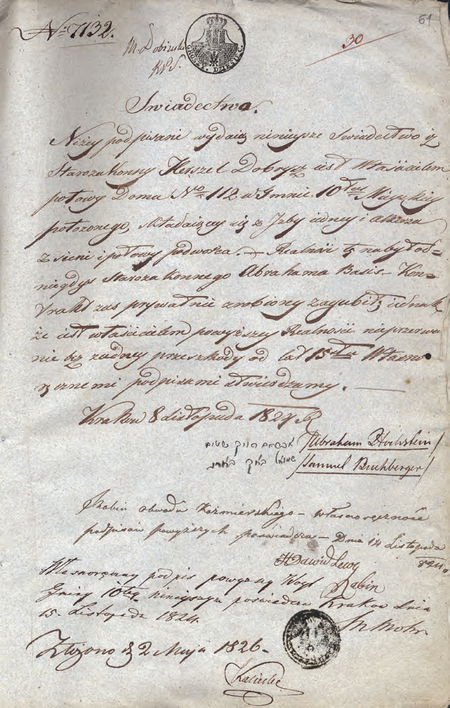 № 7132.
30
61
Swiadectwo.
Niżey podpisani wydaią ninieysze Swiadectwo iż
Starozakonny Herszel Dobrysz iest Właścicielem
połowy Domu Nro 112 w Gminie 10tey Mieyskiey
położonego, składaiący się z Izby iedney i alkierza
z sieni i połowy podworka. — Realność tę nabył od
niegdyś Starozakonnego Abrahama Basis. Kon-
trakt zaś prywatnie zrobiony zagubił, iednak
że iest właścicielem powyższey Realności nieprzerwa
nie bez żadney przeszkody od lat 15tu własno
ręcznemi podpisami stwierdzamy. —
Krakow 8 Listopada 1824 R
Abraham Hochstein
Samuel Buchberger
Rabin obwodu Kazmierskiego — własnoręczność
podpisow powyższych poświadcza — Dnia 14 Listopada
824
Dawid Lewy
Rabin
Własnoręczny podpis powyższy Woyt
Gminy 10tey poświadcza Krakow Dnia
15 Listopada 1824
Złożono d 2 Maja 1826 —